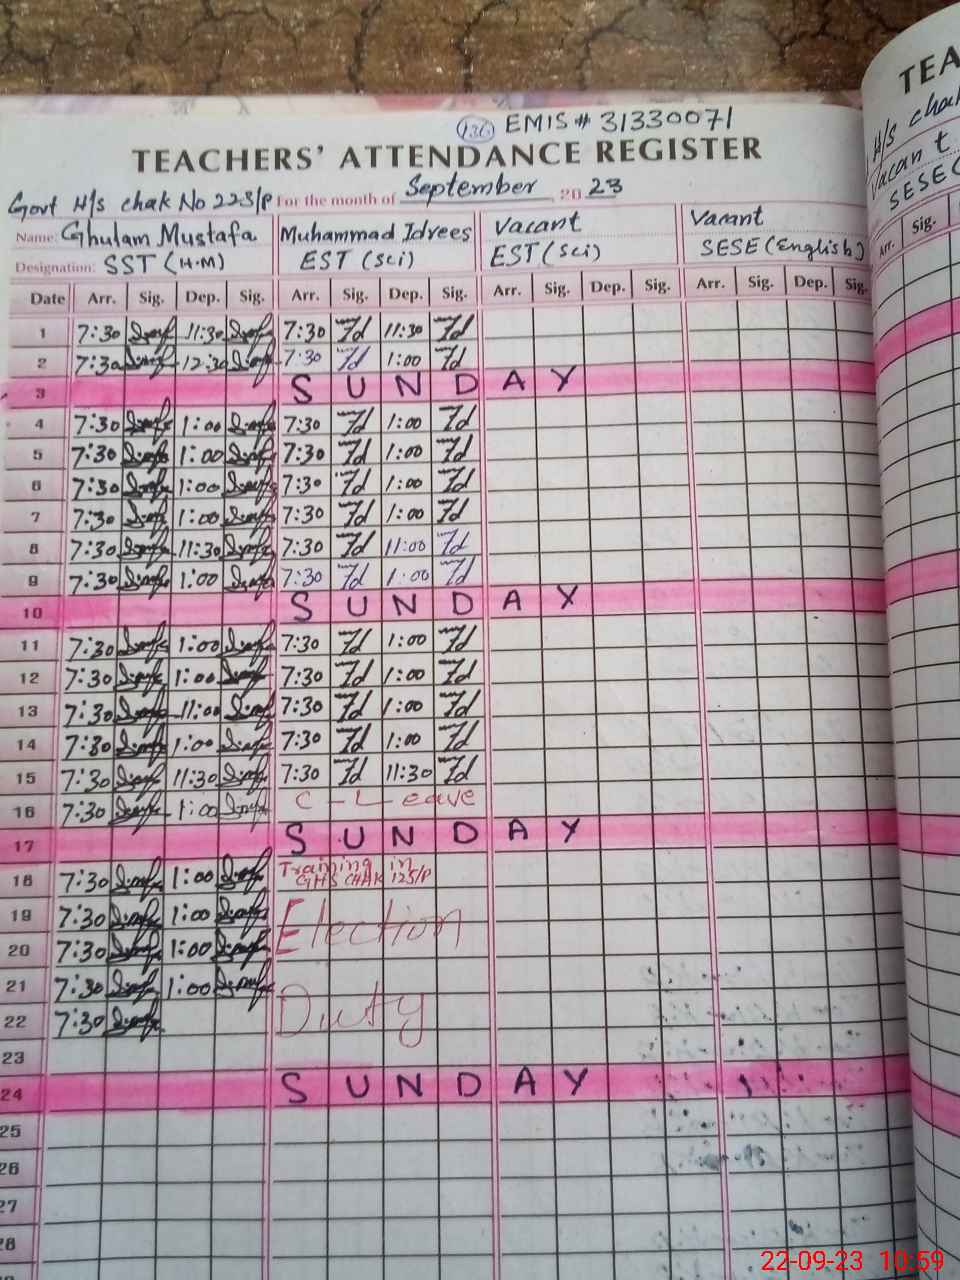 136 EMIS # 31330071
TEACHERS' ATTENDANCE REGISTER
Govt H/s chak No 223/P For the month of September, 20 23
Name: Ghulam Mustafa Muhammad Idrees Vacant Vacant
Designation: SST (H.M) EST (Sci) EST (Sci) SESE (English)
Date Arr. Sig. Dep. Sig. Arr. Sig. Dep. Sig. Arr. Sig. Dep. Sig. Arr. Sig. Dep. Sig.
1 7:30 11:30 7:30 Id 11:30 Id
2 7:30 12:30 7:30 Id 1:00 Id
3 SUNDAY
4 7:30 1:00 7:30 Id 1:00 Id
5 7:30 1:00 7:30 Id 1:00 Id
6 7:30 1:00 7:30 Id 1:00 Id
7 7:30 1:00 7:30 Id 1:00 Id
8 7:30 11:30 7:30 Id 11:00 Id
9 7:30 1:00 7:30 Id 1:00 Id
10 SUNDAY
11 7:30 1:00 7:30 Id 1:00 Id
12 7:30 1:00 7:30 Id 1:00 Id
13 7:30 11:00 7:30 Id 1:00 Id
14 7:30 1:00 7:30 Id 1:00 Id
15 7:30 11:30 7:30 Id 11:30 Id
16 7:30 1:00 C-Leave
17 SUNDAY
18 7:30 1:00 Training in
GHS CHAK 125/P
19 7:30 1:00 Election
20 7:30 1:00
21 7:30 1:00 Duty
22 7:30
23
24 SUNDAY
25
26
27
28
TEA
H/s chak
Vacant
SESE (
Arr. Sig.
22-09-23 10:59